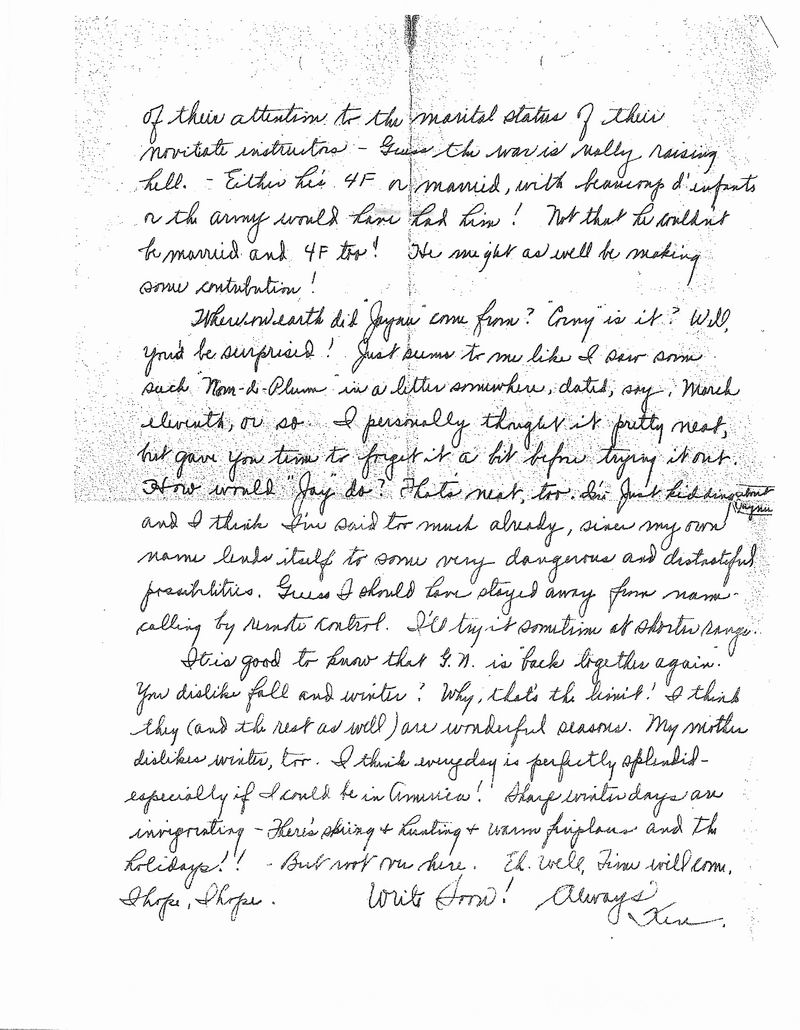 of their attention to the marital status of their
novitiate instructors - Guess the war is really raising
hell. - Either he's 4F or married, with beaucoup d'enfants
or the army would have had him! Not that he couldn't
be married and 4F too! He might as well be making
some contribution!
Where on earth did "Jaynee" come from? "Corny" is it? Well,
you'd be surprised! Just seems to me like I saw some
such "Nom-de-Plum" in a letter somewhere, dated, say, March
eleventh, or so. I personally thought it pretty neat,
but gave you time to forget it a bit before trying it out.
How would "Jay" do? That's neat, too. I'm just kidding about Jaynee
and I think I've said too much already, since my own
name lends itself to some very dangerous and distasteful
possibilities. Guess I should have stayed away from name-
calling by remote control. I'll try it sometime at shorter range.
It is good to know that G.N. is "back together again".
You dislike fall and winter? Why, that's the limit! I think
they (and the rest as well) are wonderful seasons. My mother
dislikes winter, too. I think everyday is perfectly splendid -
especially if I could be in America! Sharp winter days are
invigorating - There's skiing & hunting & warm fireplaces and the
holidays!! - But not over here. Eh. Well, Time will come,
I hope, I hope. Write Soon! Always
Ken.